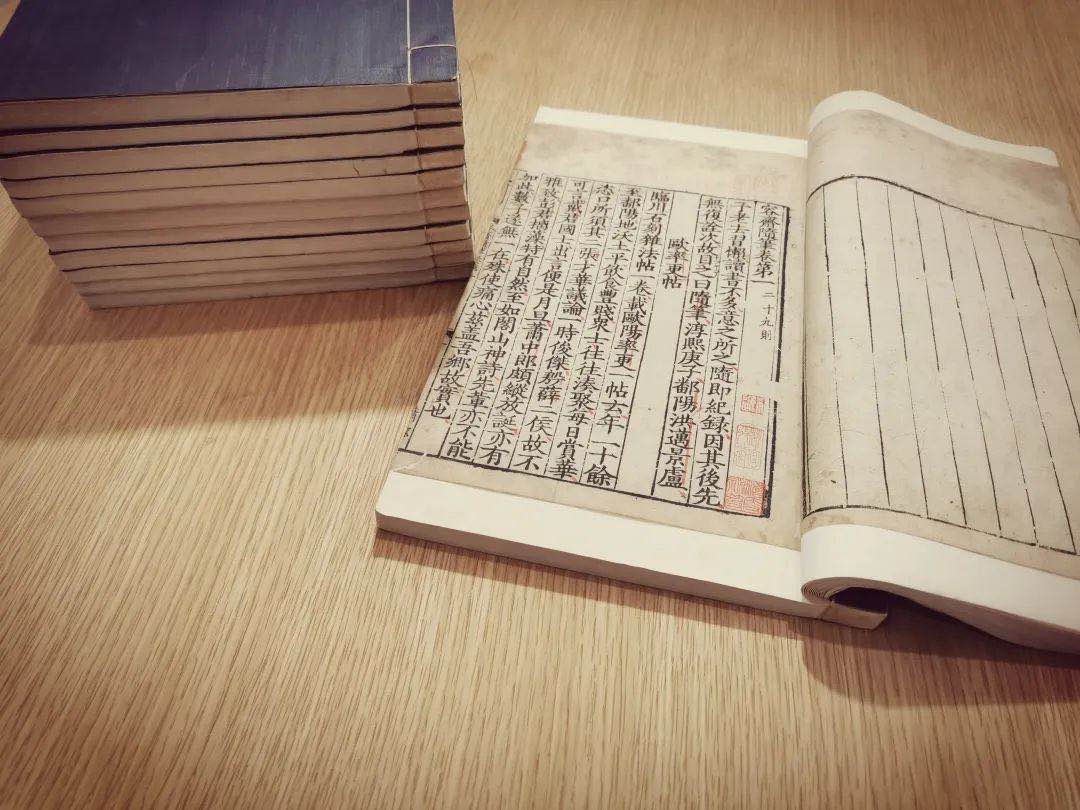 容齋隨筆卷第一 二十九則
予老去習懶讀書不多意之所之隨即紀録因其後先
無復詮次故目之曰隨筆淳熙庚子鄱陽洪邁景盧
歐率更帖
臨川石刻雜法帖一卷載歐陽率更一帖云年二十餘
至鄱陽地沃土平飲食豐賤衆士往往湊聚每日賞華
恣口所須其二張才華議論一時俊傑殷薛二侯故不
可言戴君國士出言便是月旦蕭中郎頗縱放誕亦有
雅致彭君摛藻特有自然至如閣山神詩先輩亦不能
加此數子遂無一在殊使痛心茲蓋吾鄉故實也